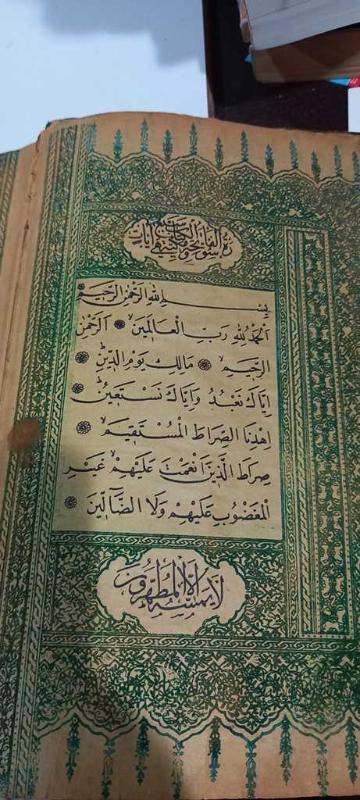 بِسْمِ اللهِ الرَّحْمٰنِ الرَّحِيمِ
اَلْحَمْدُ لِلّٰهِ رَبِّ الْعَالَمِينَ اَلرَّحْمٰنِ
الرَّحِيمِ مَالِكِ يَوْمِ الدِّينِ
اِيَّاكَ نَعْبُدُ وَاِيَّاكَ نَسْتَعِينُ
اِهْدِنَا الصِّرَاطَ الْمُسْتَقِيمَ
صِرَاطَ الَّذِينَ اَنْعَمْتَ عَلَيْهِمْ غَيْرِ
الْمَغْضُوبِ عَلَيْهِمْ وَلَا الضَّالِّينَ
لَا يَمَسُّهُ اِلَّا الْمُطَهَّرُونَ